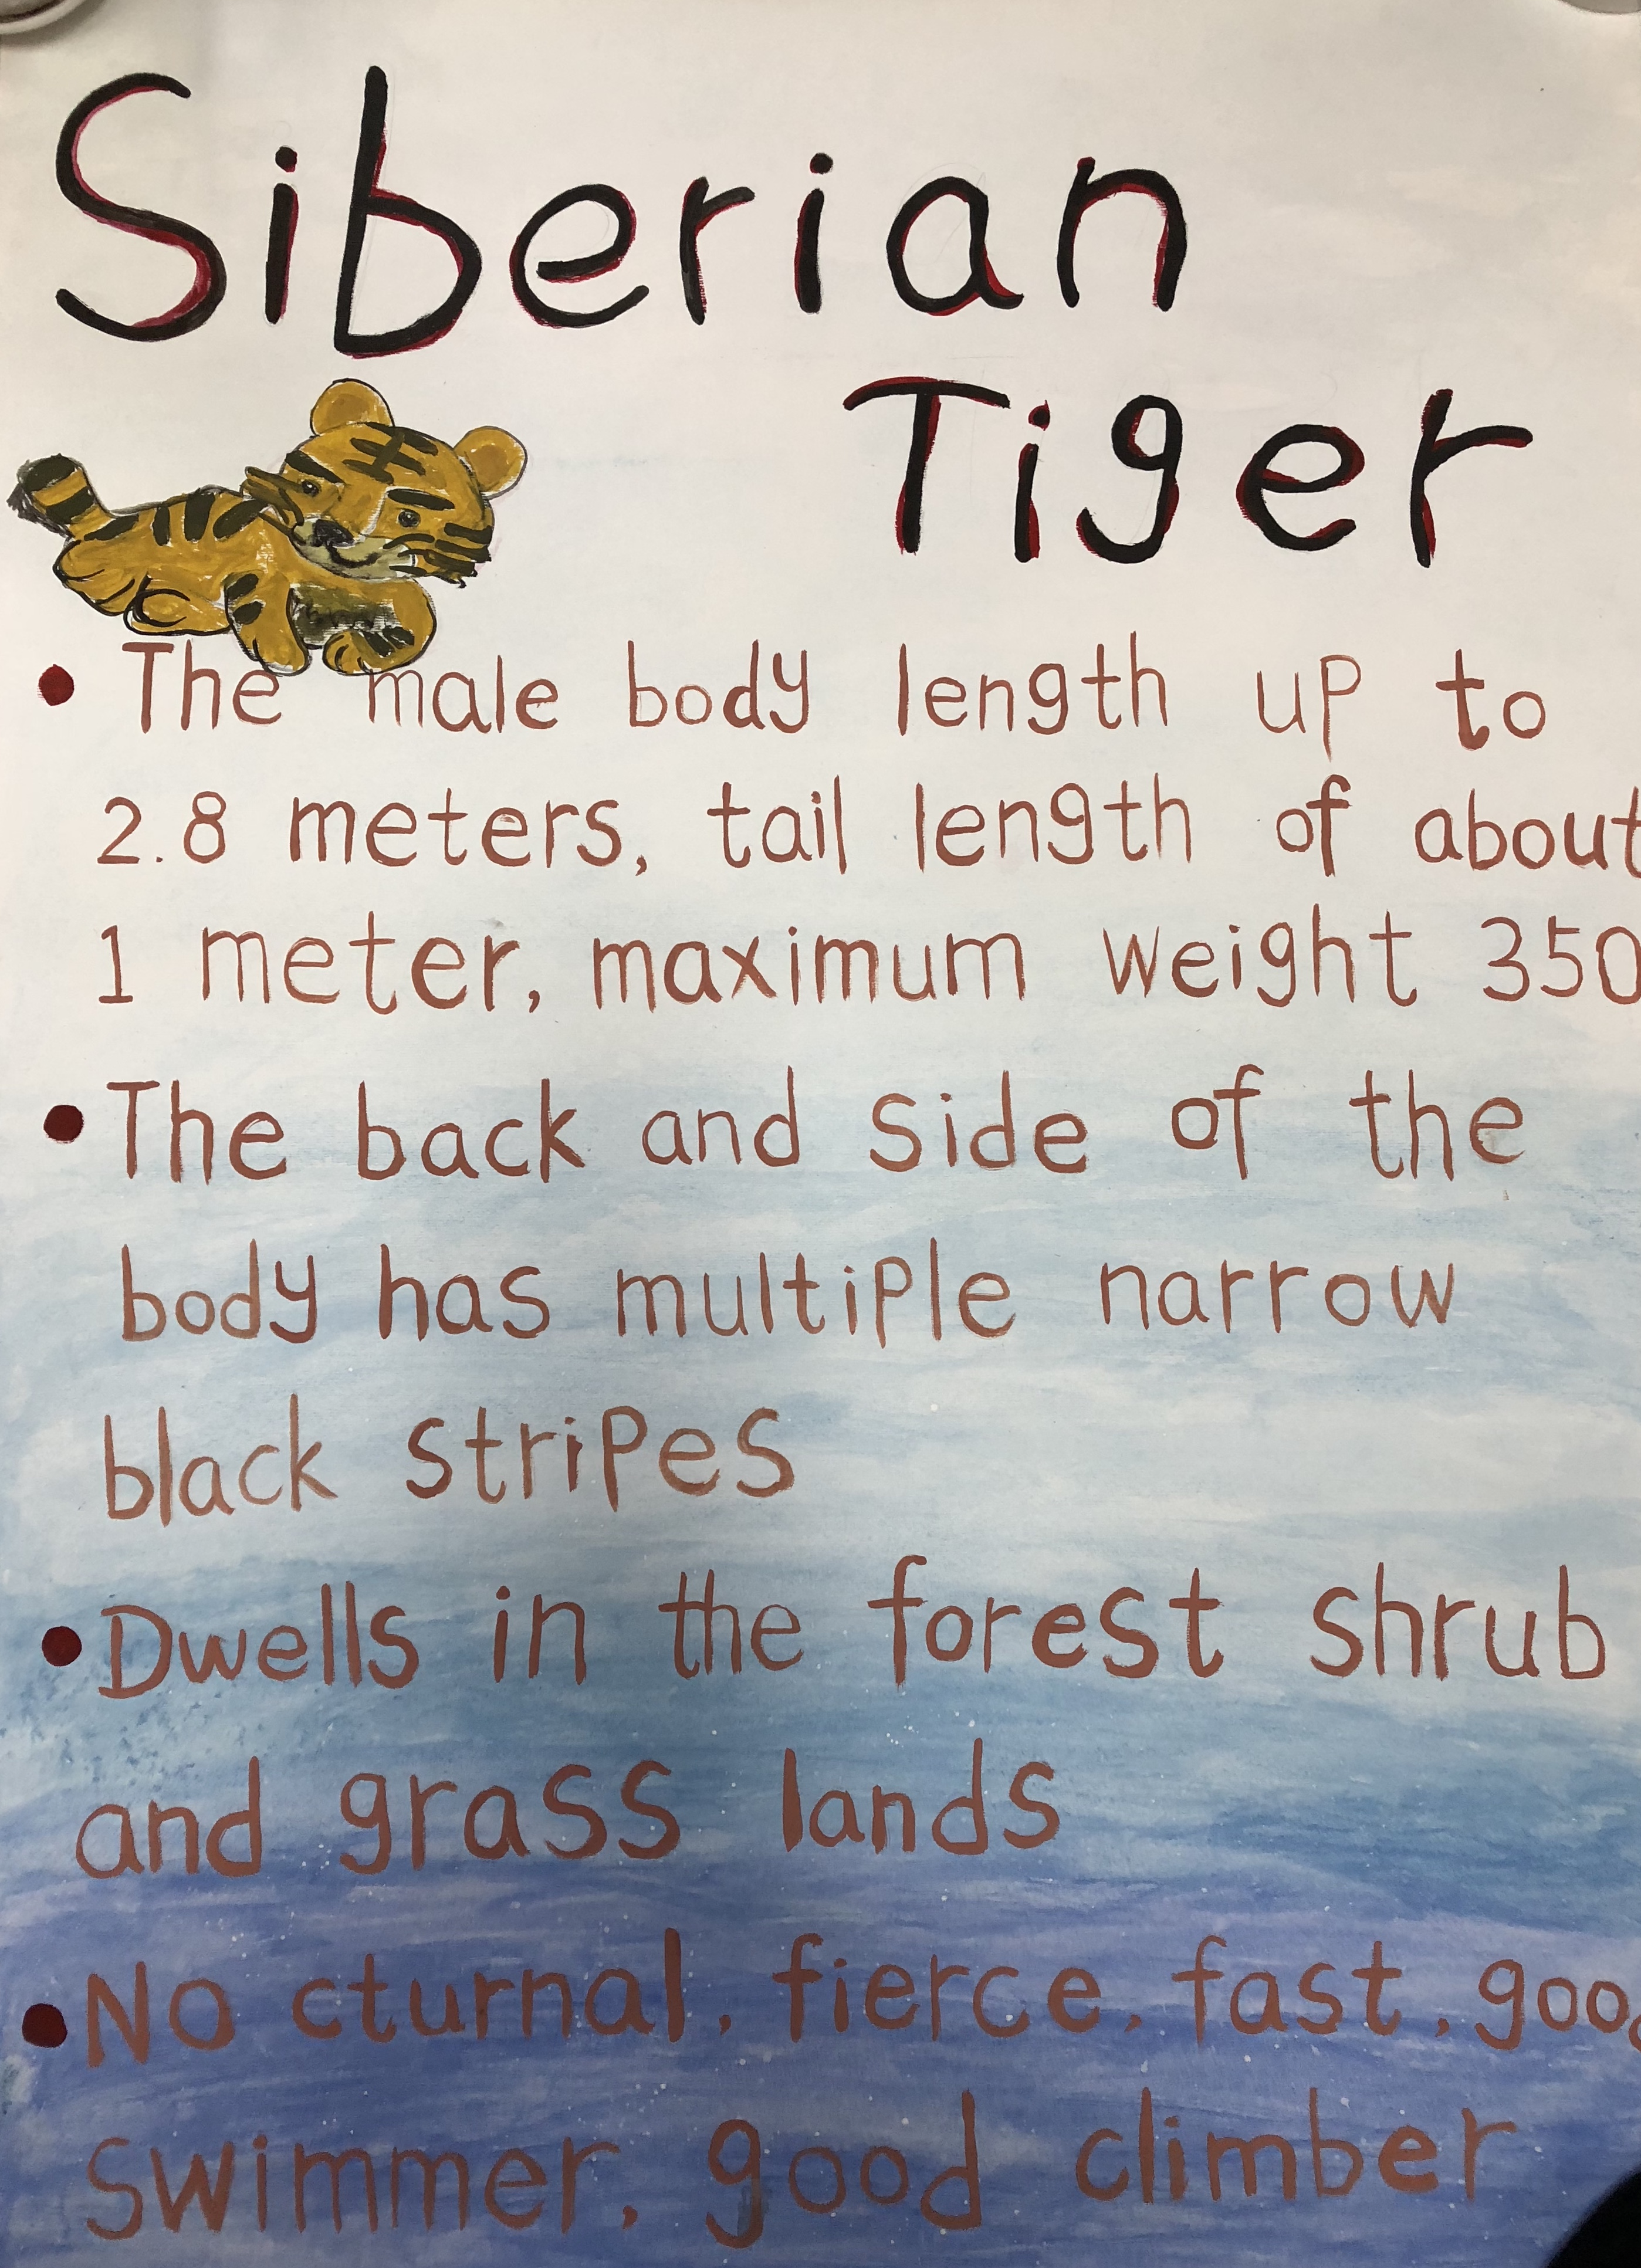 Siberian
Tiger
• The male body length up to
2.8 meters, tail length of about
1 meter, maximum weight 350
• The back and side of the
body has multiple narrow
black stripes
• Dwells in the forest shrub
and grass lands
• No cturnal, fierce, fast, good
swimmer, good climber